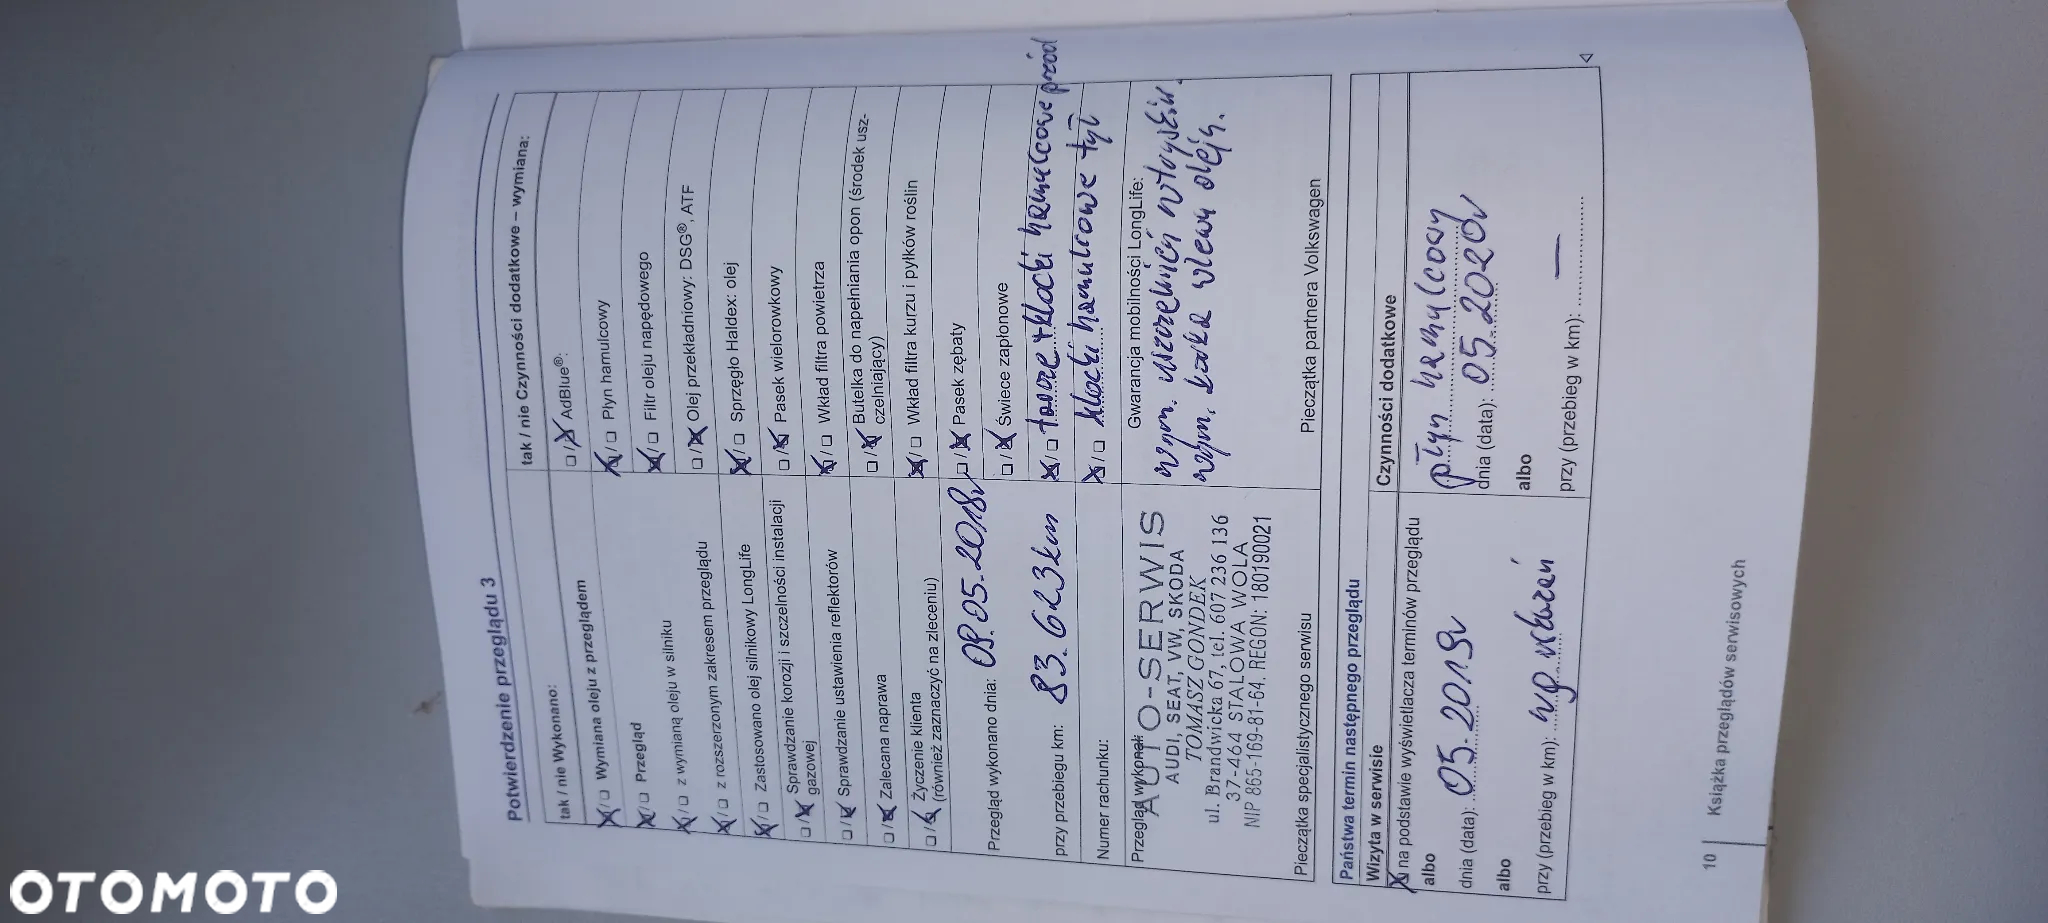 Potwierdzenie przeglądu 3
tak / nie Wykonano:
X/□ Wymiana oleju z przeglądem
X/□ Przegląd
X/□ z wymianą oleju w silniku
X/□ z rozszerzonym zakresem przeglądu
X/□ Zastosowano olej silnikowy LongLife
□/X Sprawdzanie korozji i szczelności instalacji
gazowej
□/X Sprawdzanie ustawienia reflektorów
□/X Zalecana naprawa
□/X Życzenie klienta
(również zaznaczyć na zleceniu)
Przegląd wykonano dnia: 09.05.2018r
przy przebiegu km: 83.623km
Numer rachunku:
Przegląd wykonał:
AUTO-SERWIS
AUDI, SEAT, VW, SKODA
TOMASZ GONDEK
ul. Brandwicka 67, tel. 607 236 136
37-464 STALOWA WOLA
NIP 865-169-81-64, REGON: 180190021
Pieczątka specjalistycznego serwisu
tak / nie Czynności dodatkowe – wymiana:
□/X AdBlue®:
X/□ Płyn hamulcowy
X/□ Filtr oleju napędowego
□/X Olej przekładniowy: DSG®, ATF
X/□ Sprzęgło Haldex: olej
□/X Pasek wielorowkowy
X/□ Wkład filtra powietrza
□/X Butelka do napełniania opon (środek usz-
czelniający)
X/□ Wkład filtra kurzu i pyłków roślin
□/X Pasek zębaty
□/X Świece zapłonowe
X/□ tarcze + klocki hamulcowe przód
X/□ klocki hamulcowe tył
Gwarancja mobilności LongLife:
wym. uszczelnień wtrysków.
wym. korka wlewu oleju.
Pieczątka partnera Volkswagen
Państwa termin następnego przeglądu
Wizyta w serwisie
X na podstawie wyświetlacza terminów przeglądu
albo
dnia (data): 05.2019r
albo
przy (przebieg w km): wg wskazań
Czynności dodatkowe
płyn hamulcowy
dnia (data): 05.2020r
albo
przy (przebieg w km): —
◁
10 | Książka przeglądów serwisowych
OTOMOTO